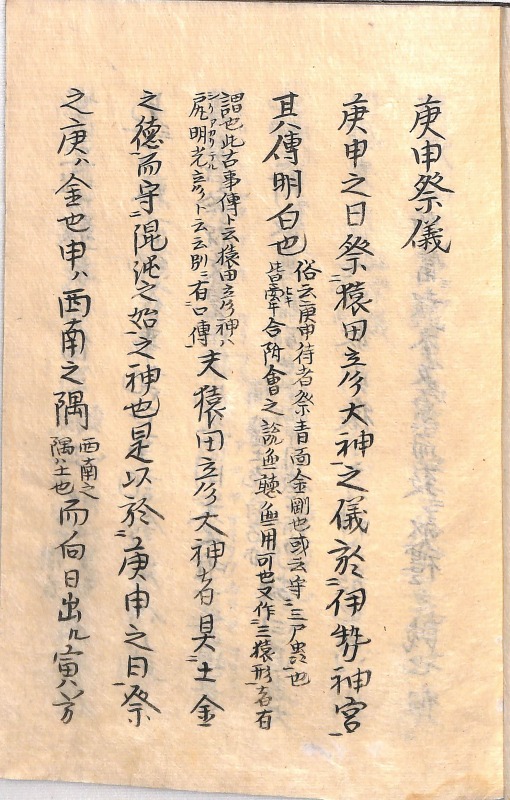 庚申祭儀
庚申之日祭猿田彦大神之儀於伊勢神宮
其傳明白也
俗云庚申待者祭青面金剛也或云守三尸虫也
皆牽合附會之説無聴無用可也又作三猿形者有
謂也此古事傳ト云猿田彦神ハ
尻明光彦ト云云別ニ有口傳
夫猿田彦大神者具土金
之德而守混沌之始之神也是以於庚申之日祭
之庚ハ金也申ハ西南之隅
西南之
隅ハ土也
而向日出ル寅方